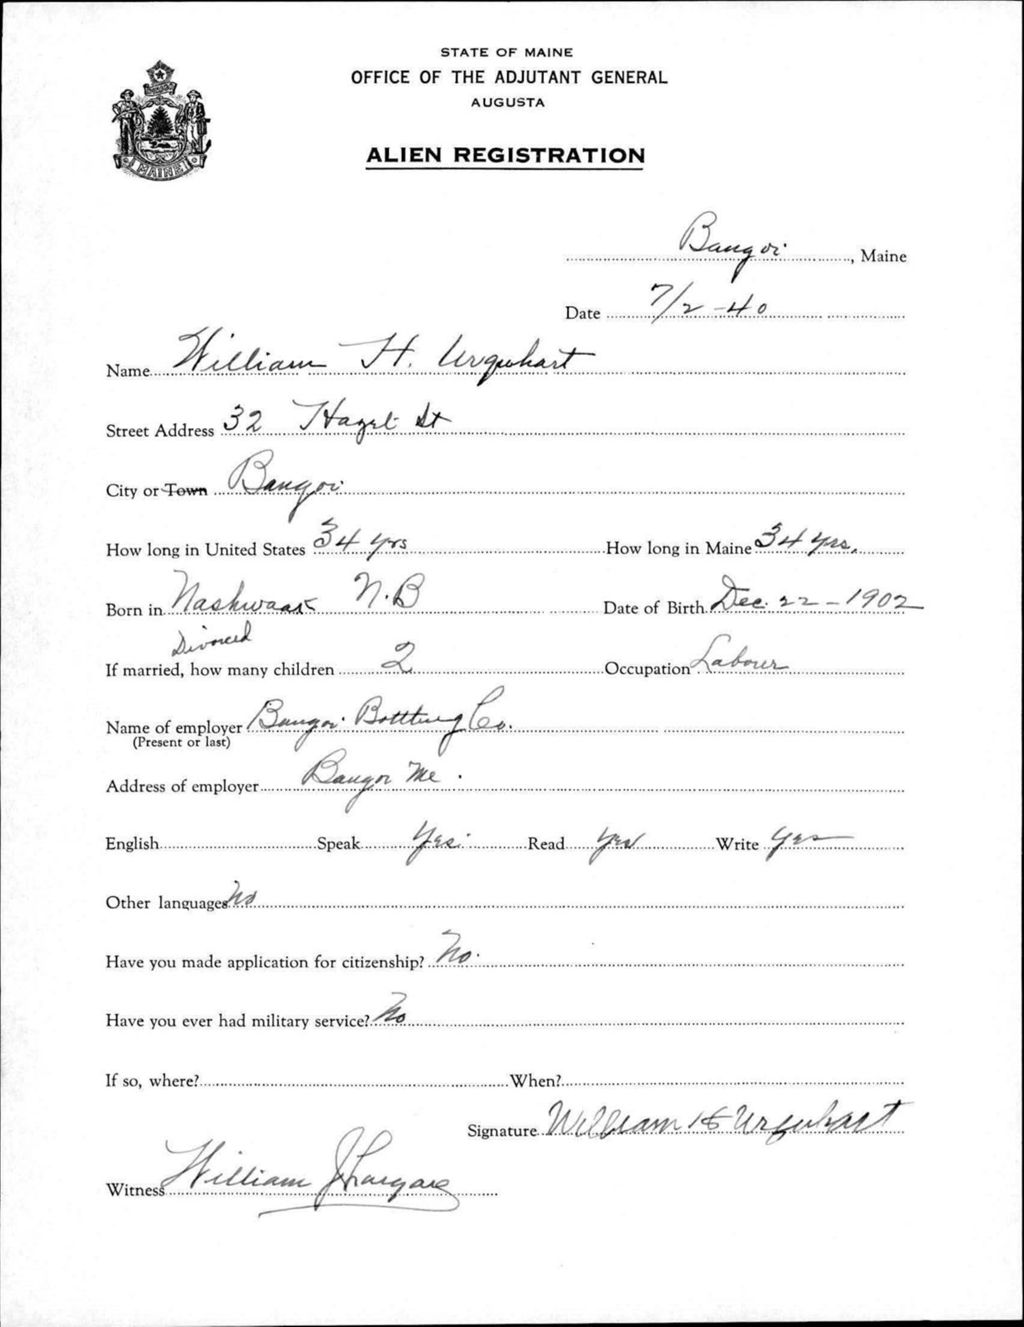 STATE OF MAINE
OFFICE OF THE ADJUTANT GENERAL
AUGUSTA
MAINE
ALIEN REGISTRATION
Bangor, Maine
Date 7/2-40
Name William H. Urquhart
Street Address 32 Hazel St
City or Town Bangor
How long in United States 34 yrs How long in Maine 34 yrs.
Born in Nashwaak N.B Date of Birth Dec. 22-1902
Divorced
If married, how many children 2 Occupation Labour
Name of employer Bangor Bottling Co.
(Present or last)
Address of employer Bangor Me.
English Speak Yes. Read yes Write yes
Other languages No
Have you made application for citizenship? No.
Have you ever had military service? No
If so, where? When?
Signature William H Urquhart
Witness William